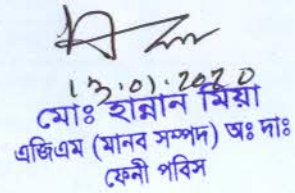 13.01.2020
মোঃ হান্নান মিয়া
এজিএম (মানব সম্পদ) অঃ দাঃ
ফেনী পবিস